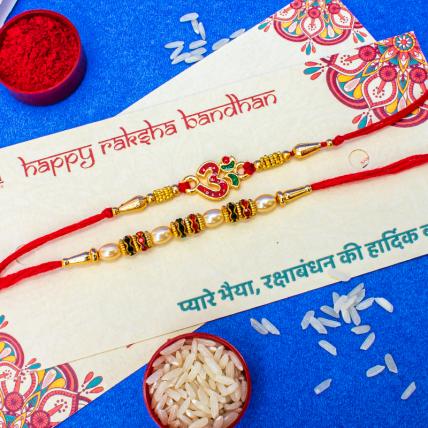 happy raksha bandhan
प्यारे भैया, रक्षाबंधन की हार्दिक